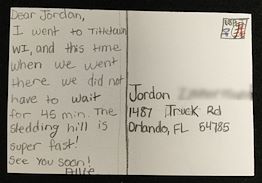 Dear Jordan,
I went to Titletown
WI, and this time
when we went
there we did not
have to wait
for 45 min. The
sledding hill is
super fast!
See you soon!
Allie
Jordan
1487 Truck Rd
Orlando, FL 54785